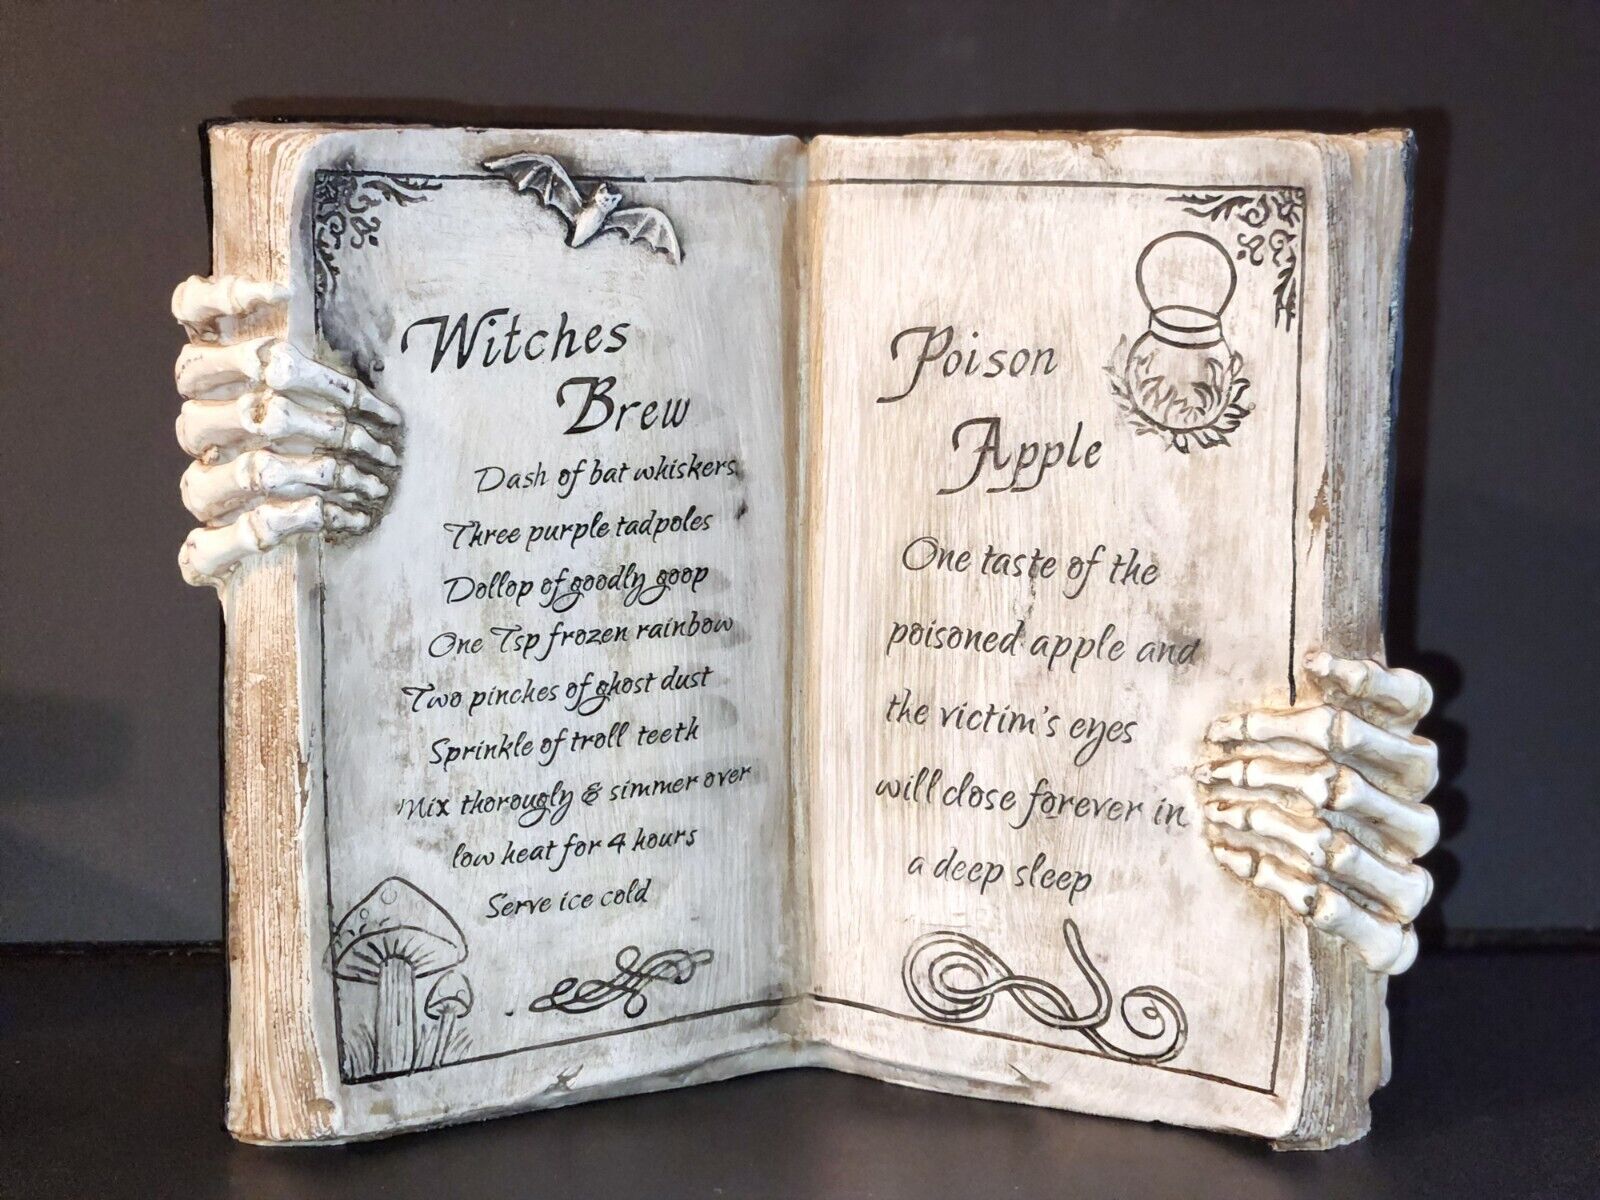 Witches
Brew
Dash of bat whiskers
Three purple tadpoles
Dollop of goodly goop
One Tsp frozen rainbow
Two pinches of ghost dust
Sprinkle of troll teeth
Mix thorougly & simmer over
low heat for 4 hours
Serve ice cold
Poison
Apple
One taste of the
poisoned apple and
the victim's eyes
will close forever in
a deep sleep